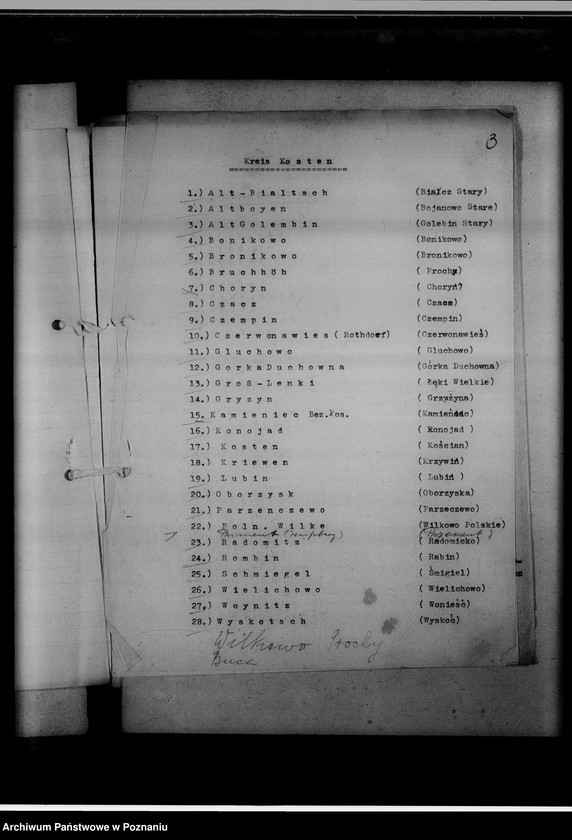 3
Kreis Kosten
1.) Alt-Bialtsch (Białcz Stary)
2.) Altboyen (Bojanowo Stare)
3.) AltGolembin (Golebin Stary)
4.) Bonikowo (Bonikowo)
5.) Bronikowo (Bronikowo)
6.) Bruchhöh ( Prochy)
7.) Choryn ( Choryń?
8.) Czacz ( Czacz)
9.) Czempin (Czempin)
10.) Czerwonawies ( Rothdorf) (Czerwonawieś)
11.) Gluchowo ( Gluchowo)
12.) GorkaDuchowna (Górka Duchowna)
13.) Groß-Lenki ( Łęki Wielkie)
14.) Gryzyn ( Gryżyna)
15. Kamieniec Bez.Pos. (Kamieniec)
16.) Konojad ( Konojad )
17.) Kosten ( Kościan)
18.) Kriewen (Krzywiń)
19.) Lubin ( Lubiń )
20.) Oborzysk (Oborzyska)
21.) Parzenczewo (Parzeczewo)
22.) Poln. Wilke (Wilkowo Polskie)
23.) Radomitz ( Radomicko)
24.) Rombin ( Rabin)
25.) Schmiegel ( Śmigiel)
26.) Wielichowo ( Wielichowo)
27.) Woynitz ( Wonieść)
28.) Wyskotsch (Wyskoć)
Wilkowo Prochy
Archiwum Państwowe w Poznaniu